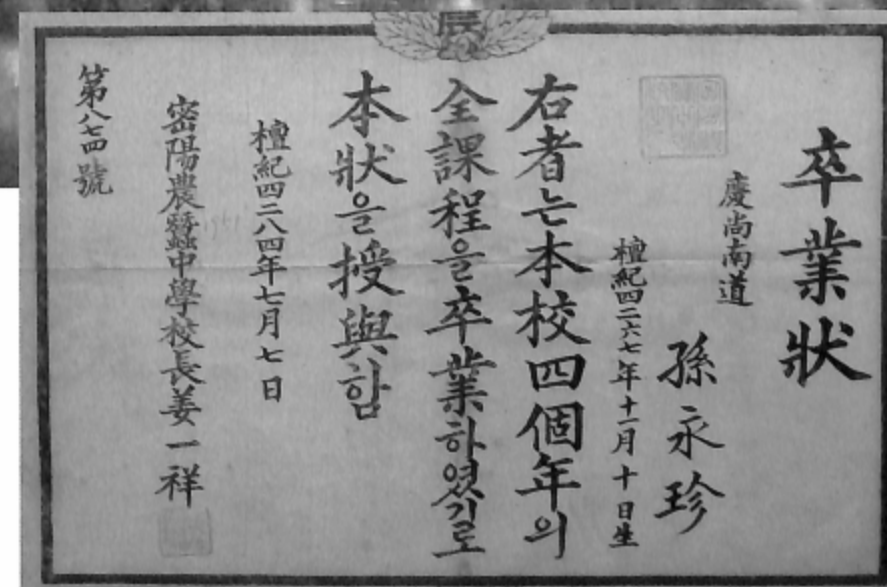 農
卒業狀
慶尙南道
孫永珍
檀紀四二六七年十一月十日生
右者는本校四個年의
全課程을卒業하였기로
本狀을授與함
檀紀四二八四年七月七日
密陽農蠶中學校長姜一祥
第八七四號